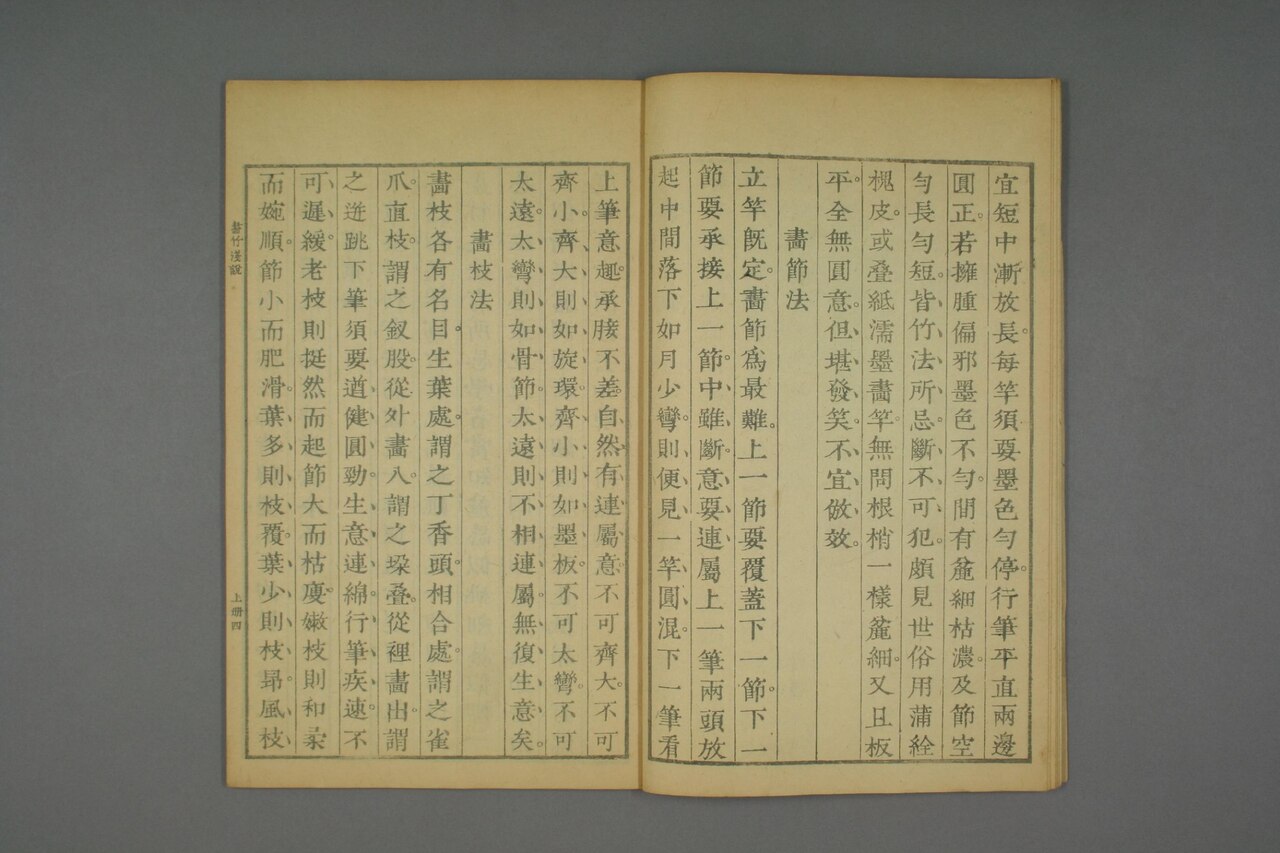 宜短中漸放長。每竿須要墨色勻停。行筆平直兩邊
圓正。若擁腫偏邪墨色不勻。間有麄細枯濃及節空
勻長勻短。皆竹法所忌、斷不可犯。頗見世俗用蒲絟
槐皮。或叠紙濡墨畫竿。無問根梢一樣麄細。又且板
平。全無圓意。但堪發笑。不宜倣效。
畫節法
立竿旣定。畫節爲最難。上一節要覆蓋下一節。下一
節要承接上一節。中雖斷。意要連屬。上一筆兩頭放
起中間落下如月少彎。則便見一竿圓混。下一筆看
上筆意趣。承接不差。自然有連屬意。不可齊大。不可
齊小。齊大則如旋環。齊小則如墨板。不可太彎。不可
太遠。太彎則如骨節、太遠則不相連屬、無復生意矣。
畫枝法
畫枝各有名目。生葉處。謂之丁香頭。相合處。謂之雀
爪。直枝。謂之釵股。從外畫入。謂之垜叠。從裡畫出。謂
之迸跳。下筆須要遒健圓勁、生意連綿。行筆疾速。不
可遲緩。老枝則挺然而起節大而枯廋。嫩枝則和柔
而婉順。節小而肥滑。葉多則枝覆。葉少則枝昻。風枝
畫竹淺說
上册四